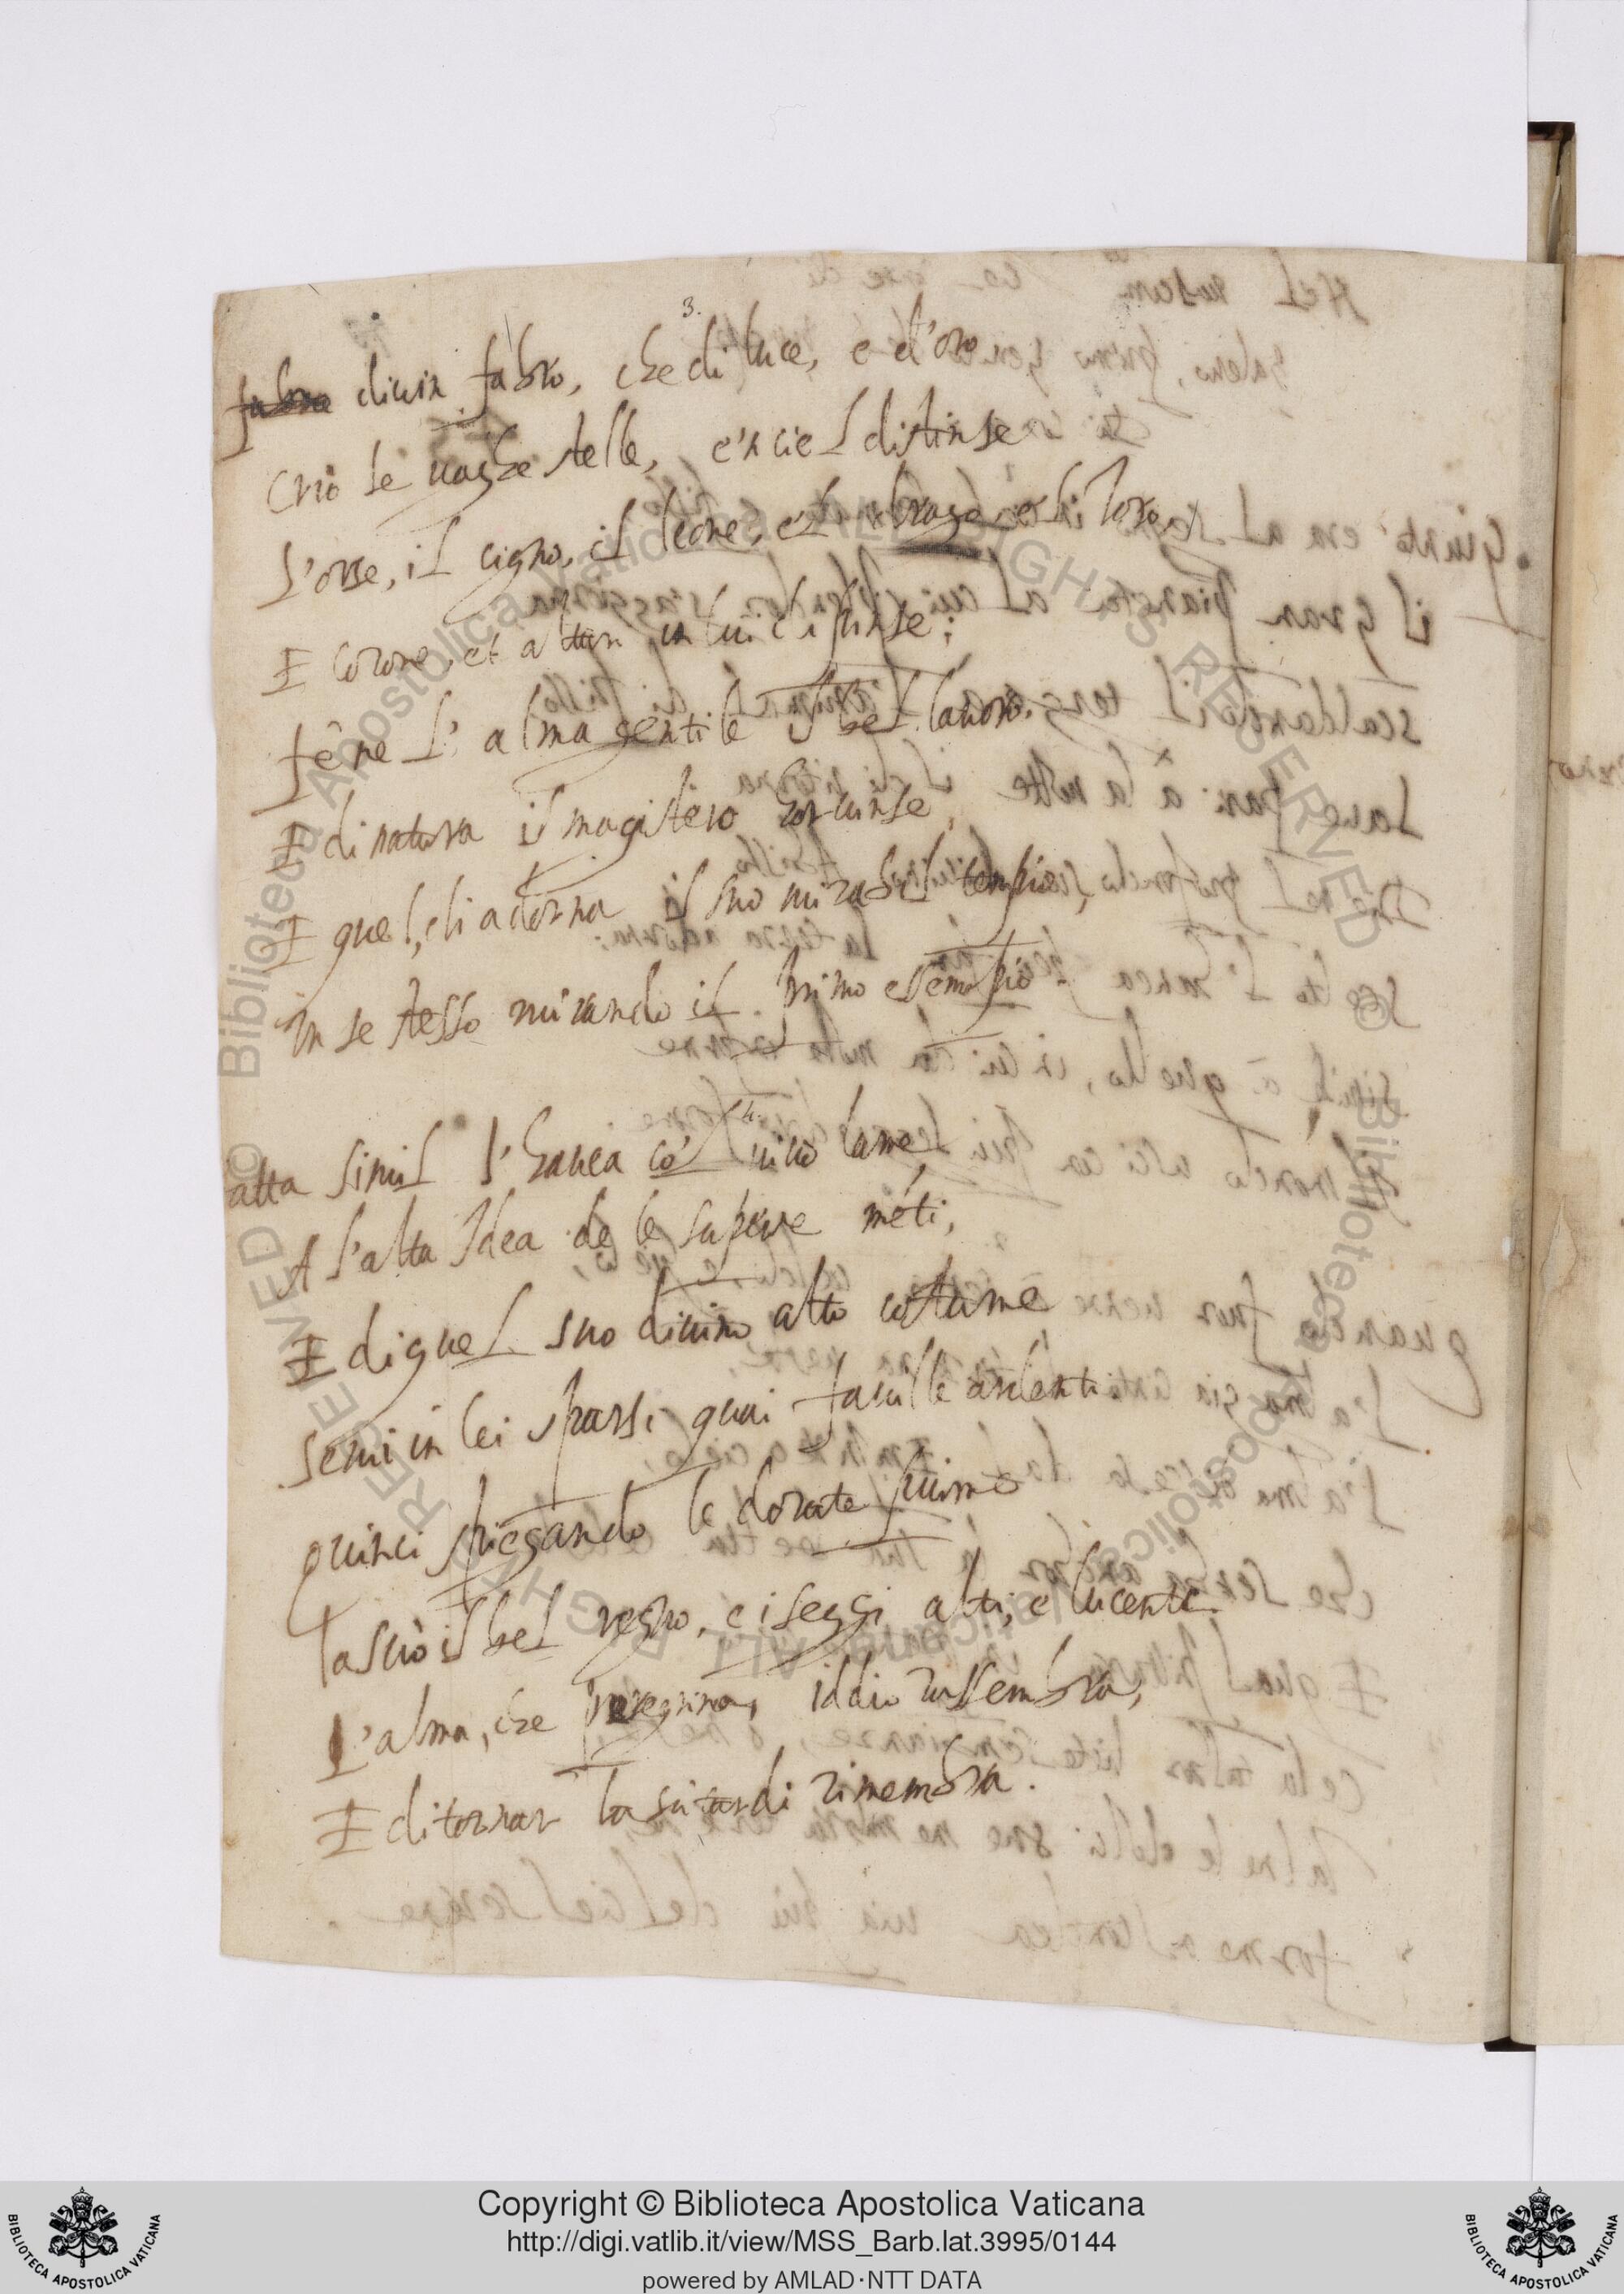 3.
fabro divin fabro, che di luce, e d'oro
Criò le vaghe stelle, e'n ciel distinse
L'orse, il cigno, il leone, e'l drago e'l Toro,
E corone, et altari in lui dipinse;
fè ne l'alma gentile il bel lavoro.
E di natura il magistero hor vinse,
E quel, ch'adorna il suo mirabil tempio,
In se stesso mirando il primo essempio
4.
fatta simil l'havea co'l vivo lume
A l'alta Idea de le superne mēti,
E di quel suo divino alto costume
Semi in lei sparsi quai faville ardenti
Quinci spiegando le dorate piume
Lasciò il bel regno, e i seggi alti, e lucenti
L'alma, che peregrina, iddio rassembra,
E di tornar la su tardi rimembra.
© Biblioteca Apostolica Vaticana ALL RIGHTS RESERVED
Copyright © Biblioteca Apostolica Vaticana
http://digi.vatlib.it/view/MSS_Barb.lat.3995/0144
powered by AMLAD·NTT DATA
BIBLIOTECA APOSTOLICA VATICANA
BIBLIOTECA APOSTOLICA VATICANA